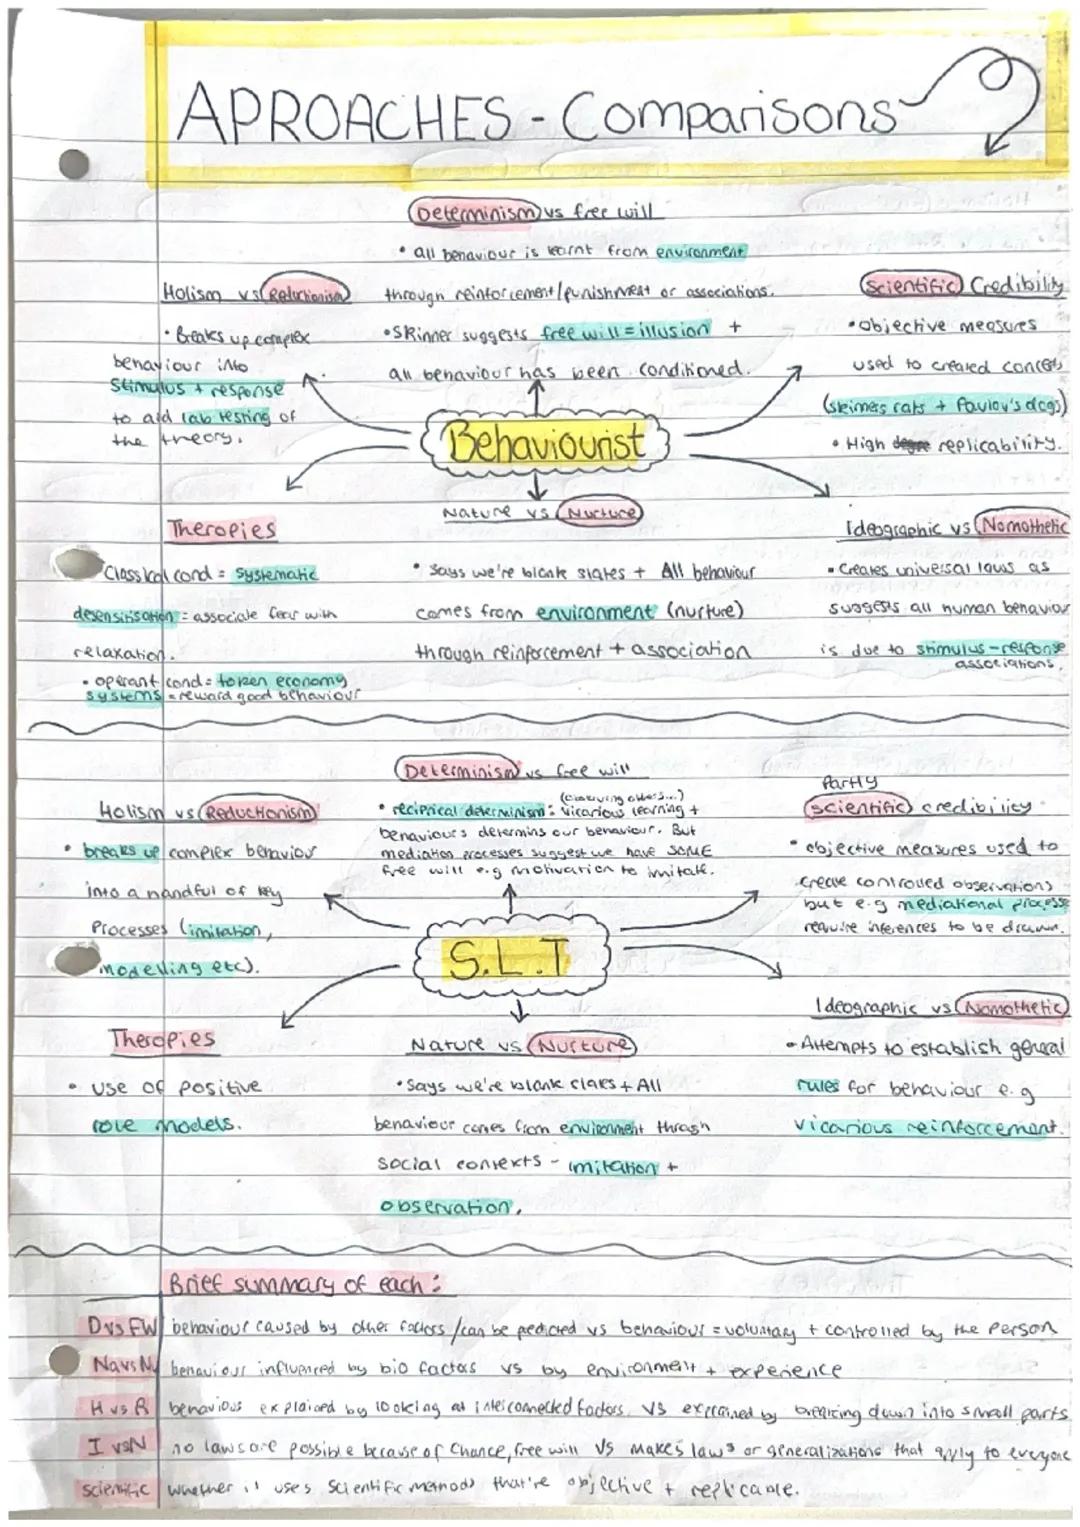 APROACHES - Comparisons
Determinism vs free will
• all behaviour is learnt from environment
through reinforcement/punishment or associations.
• Skinner suggests free will = illusion +
all behaviour has been conditioned.
Holism vs Reductionism
• Breaks up complex
behaviour into
Stimulus + response
to aid lab testing of
the theory.
Scientific Credibility
• Objective measures
used to created
(skinners rats + Pavlov's dogs)
• High replicability.
Behaviourist
Therapies
Classical cond = systematic
desensitisation = associate fear with
relaxation.
• operant cond = token economy
systems = reward good behaviour
Nature vs Nurture
• says we're blank slates + All behaviour
comes from environment (nurture)
through reinforcement + association
Ideographic vs Nomothetic
• Creates universal laws as
suggests all human behaviour
is due to stimulus-response
associations.
Determinism vs free will
(observing others...)
• reciprical determinism: vicarious learning +
behaviours determins our behaviour. But
mediation processes suggest we have SOME
free will e.g motivation to imitate.
Holism vs Reductionism
• breaks up complex behaviour
into a handful of key
Processes (imitation,
modelling etc).
Partly
scientific credibility
• objective measures used to
create controlled observations
but e.g mediational process
require inferences to be drawn.
S.L.T
Therapies
• use of positive
role models.
Nature vs Nurture
• Says we're blank + All
behaviour comes from environment
social contexts - imitation +
observation.
Ideographic vs Nomothetic
• Attempts to establish general
rules for behaviour e.g
vicarious reinforcement.
Brief summary of each:
D vs FW behaviour caused by other factors /can be predicted vs behaviour = voluntary + controlled by the person
Na vs Nu behaviour influenced by bio factors vs by environment + experience
H vs R behaviour explained by looking at interconnected factors vs explained by breaking down into small parts
I vs N no laws are possible because of chance, free will vs makes laws or generalizations that apply to everyone
Scientific whether it uses scientific methods that're objective + replicable.